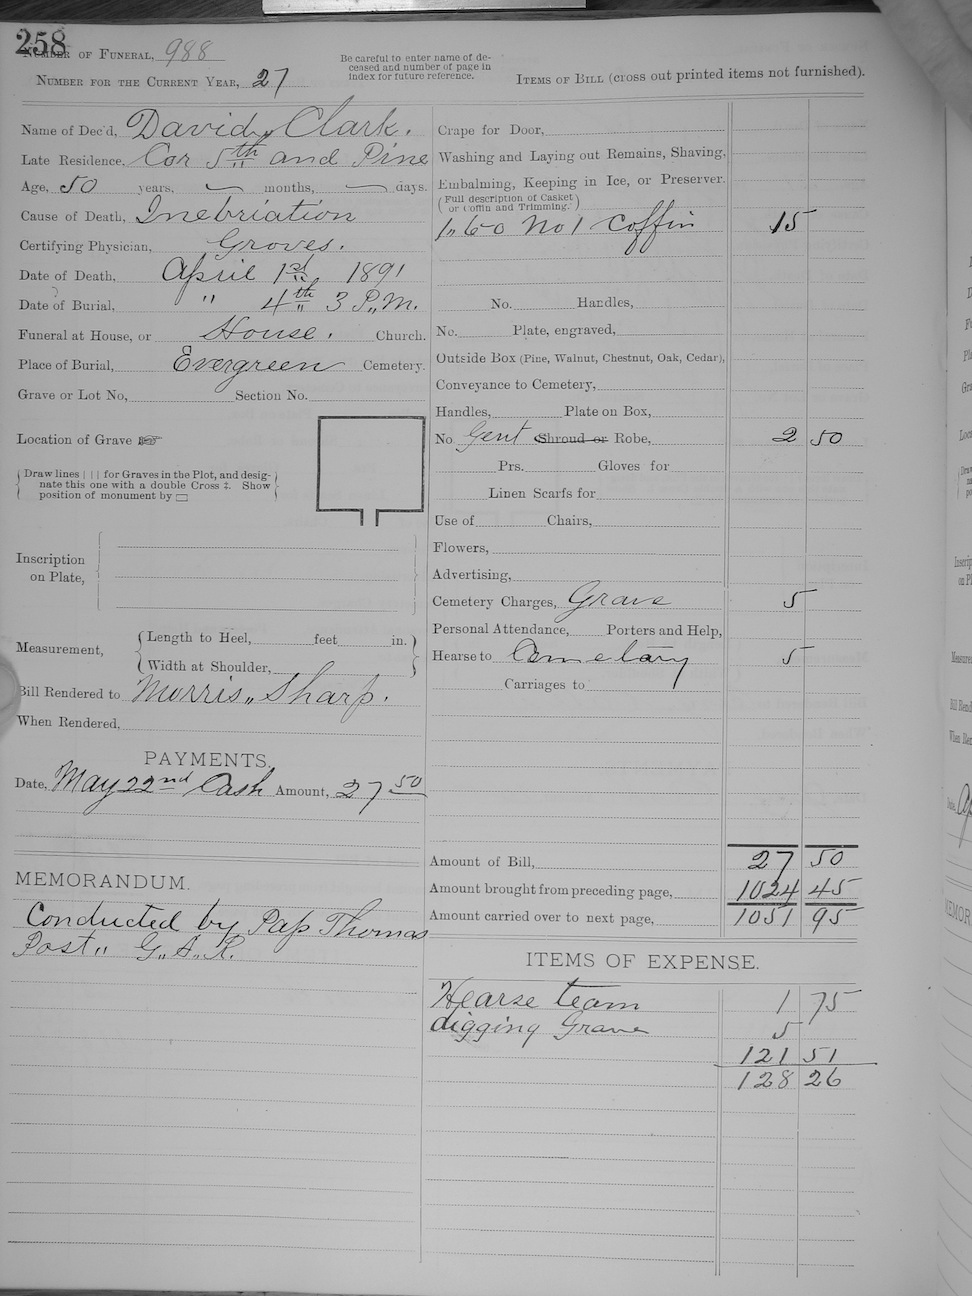 258
NUMBER OF FUNERAL, 988
NUMBER FOR THE CURRENT YEAR, 27
Be careful to enter name of de-
ceased and number of page in
index for future reference.
ITEMS OF BILL (cross out printed items not furnished).
Name of Dec'd, David Clark.
Late Residence, Cor 5th and Pine
Age, 50 years, months, days.
Cause of Death, Inebriation
Certifying Physician, Groves.
Date of Death, April 1st 1891
Date of Burial, " 4th 3 P.M.
Funeral at House, or House. Church.
Place of Burial, Evergreen Cemetery.
Grave or Lot No, Section No.
Location of Grave
Draw lines | | | for Graves in the Plot, and desig-
nate this one with a double Cross ‡. Show
position of monument by ▭
Inscription
on Plate,
Measurement,
Length to Heel, feet in.
Width at Shoulder,
Bill Rendered to Morris Sharp.
When Rendered,
PAYMENTS.
Date, May 22nd Cash Amount, 27 50
MEMORANDUM.
Conducted by Pap Thomas
Post,, G.A.R.
Crape for Door,
Washing and Laying out Remains, Shaving,
Embalming, Keeping in Ice, or Preserver.
(Full description of Casket
or Coffin and Trimming.)
1,, 60 No 1 Coffin 15
No. Handles,
No. Plate, engraved,
Outside Box (Pine, Walnut, Chestnut, Oak, Cedar),
Conveyance to Cemetery,
Handles, Plate on Box,
No Gent Shroud or Robe, 2 50
Prs. Gloves for
Linen Scarfs for
Use of Chairs,
Flowers,
Advertising,
Cemetery Charges, Grave 5
Personal Attendance, Porters and Help,
Hearse to Cemetary 5
Carriages to
Amount of Bill, 27 50
Amount brought from preceding page, 1024 45
Amount carried over to next page, 1051 95
ITEMS OF EXPENSE.
Hearse team 1 75
digging Grave 5
121 51
128 26